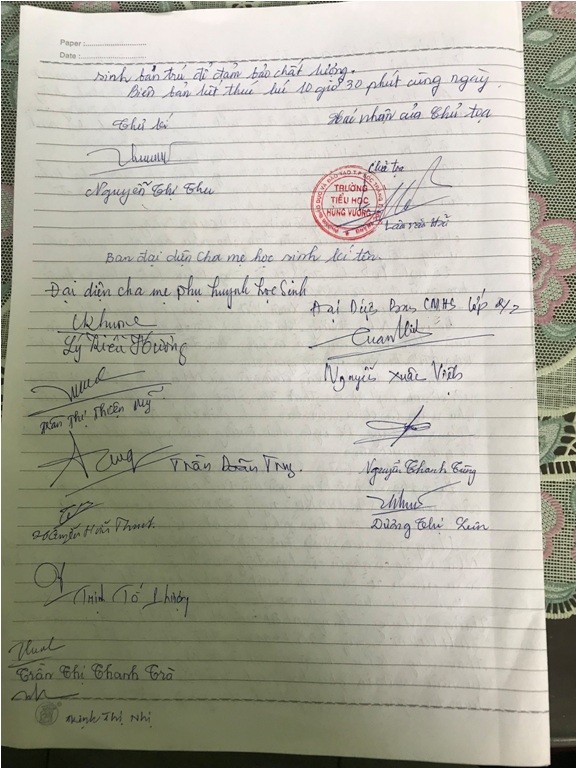 Paper :
Date :
sinh bán trú để đảm bảo chất lượng.
Biên bản kết thúc lúc 10 giờ 30 phút cùng ngày.
Thư kí
Xác nhận của Chủ tọa
Chủ tọa
Nguyễn Thị Thu
TRƯỜNG
TIỂU HỌC
HÙNG VƯƠNG
Lâm văn
Ban đại diện cha mẹ học sinh kí tên.
Đại diện cha mẹ phụ huynh học Sinh
Đại Diện Ban CMHS lớp
Lý Kiều Hương
Nguyễn Xuân Việt
Trần Thị Thiện Mỹ
Trần
Nguyễn Thanh Tùng
Dương Thị
Trịnh Tố
Trần Thị Thanh Trà
Huỳnh Thị Nhị